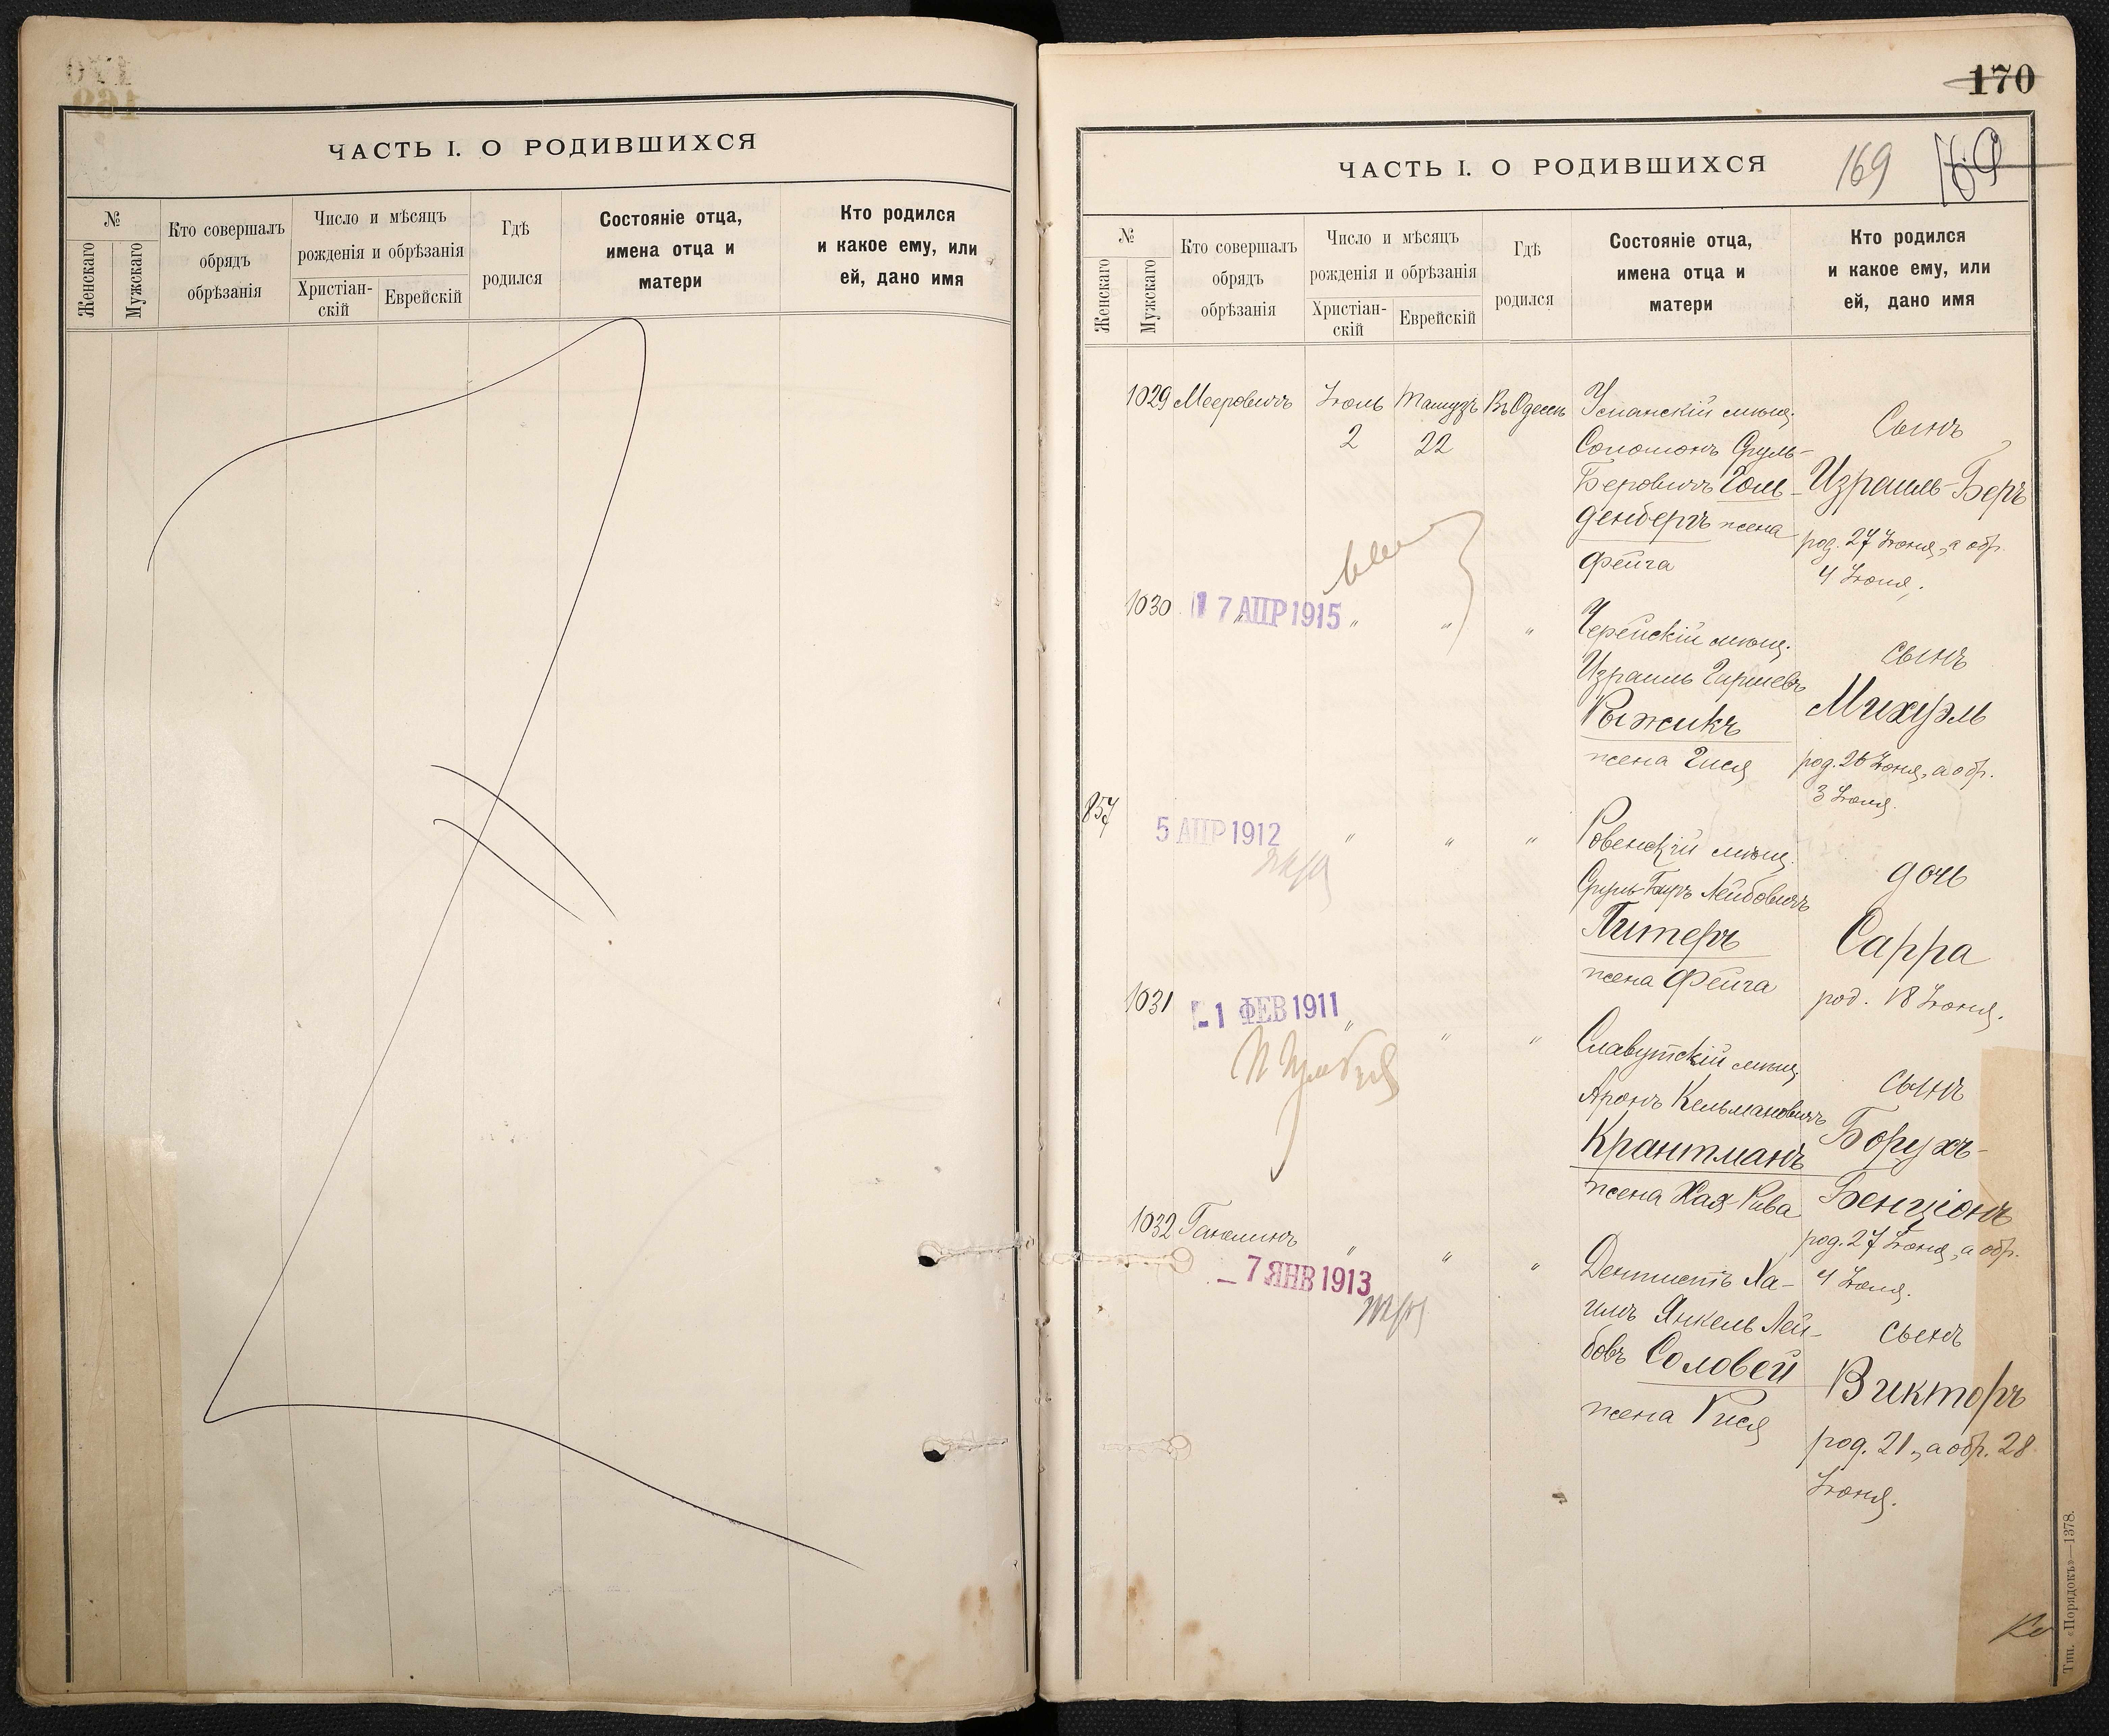 ЧАСТЬ I. О РОДИВШИХСЯ
№
Женскаго
Мужскаго
Кто совершалъ
обрядъ
обрѣзанія
Число и мѣсяцъ
рожденія и обрѣзанія
Христіан-
скій
Еврейскій
Гдѣ
родился
Состояніе отца,
имена отца и
матери
Кто родился
и какое ему, или
ей, дано имя
170
ЧАСТЬ I. О РОДИВШИХСЯ
169
169
№
Женскаго
Мужскаго
Кто совершалъ
обрядъ
обрѣзанія
Число и мѣсяцъ
рожденія и обрѣзанія
Христіан-
скій
Еврейскій
Гдѣ
родился
Состояніе отца,
имена отца и
матери
Кто родился
и какое ему, или
ей, дано имя
1029 Мееровичъ
Іюль
2
Тамузъ
22
Въ Одессѣ
мѣщ.
Соломонъ Сруль-
Беровичъ Голь-
денбергъ жена
Фейга
Сынъ
Израиль-Беръ
род. 27 Іюня, а обр.
4 Іюля.
1030
17 АПР 1915 " " "
мѣщ.
Израиль Гершевъ
Рыжикъ
жена Гися
сынъ
Михуэль
род. 26 Іюня, а обр.
3 Іюля.
857
5 АПР 1912 " " "
Ровенскій мѣщ.
Сруль Лейбовичъ
Питеръ
жена Фейга
дочь
Сарра
род. 18 Іюня.
1031
1 ФЕВ 1911 " " "
Славутскій мѣщ.
Аронъ Кельмановичъ
Крантманъ
жена Хая Рива
сынъ
Борухъ-
Бенціонъ
род. 27 Іюня, а обр.
4 Іюля.
1032
7 ЯНВ 1913
" " "
Дентистъ Ха-
имъ Янкель Лей-
бовъ Соловей
жена Рися
сынъ
Викторъ
род. 21, а обр. 28
Іюня.
Тип. «Порядокъ»—1378.